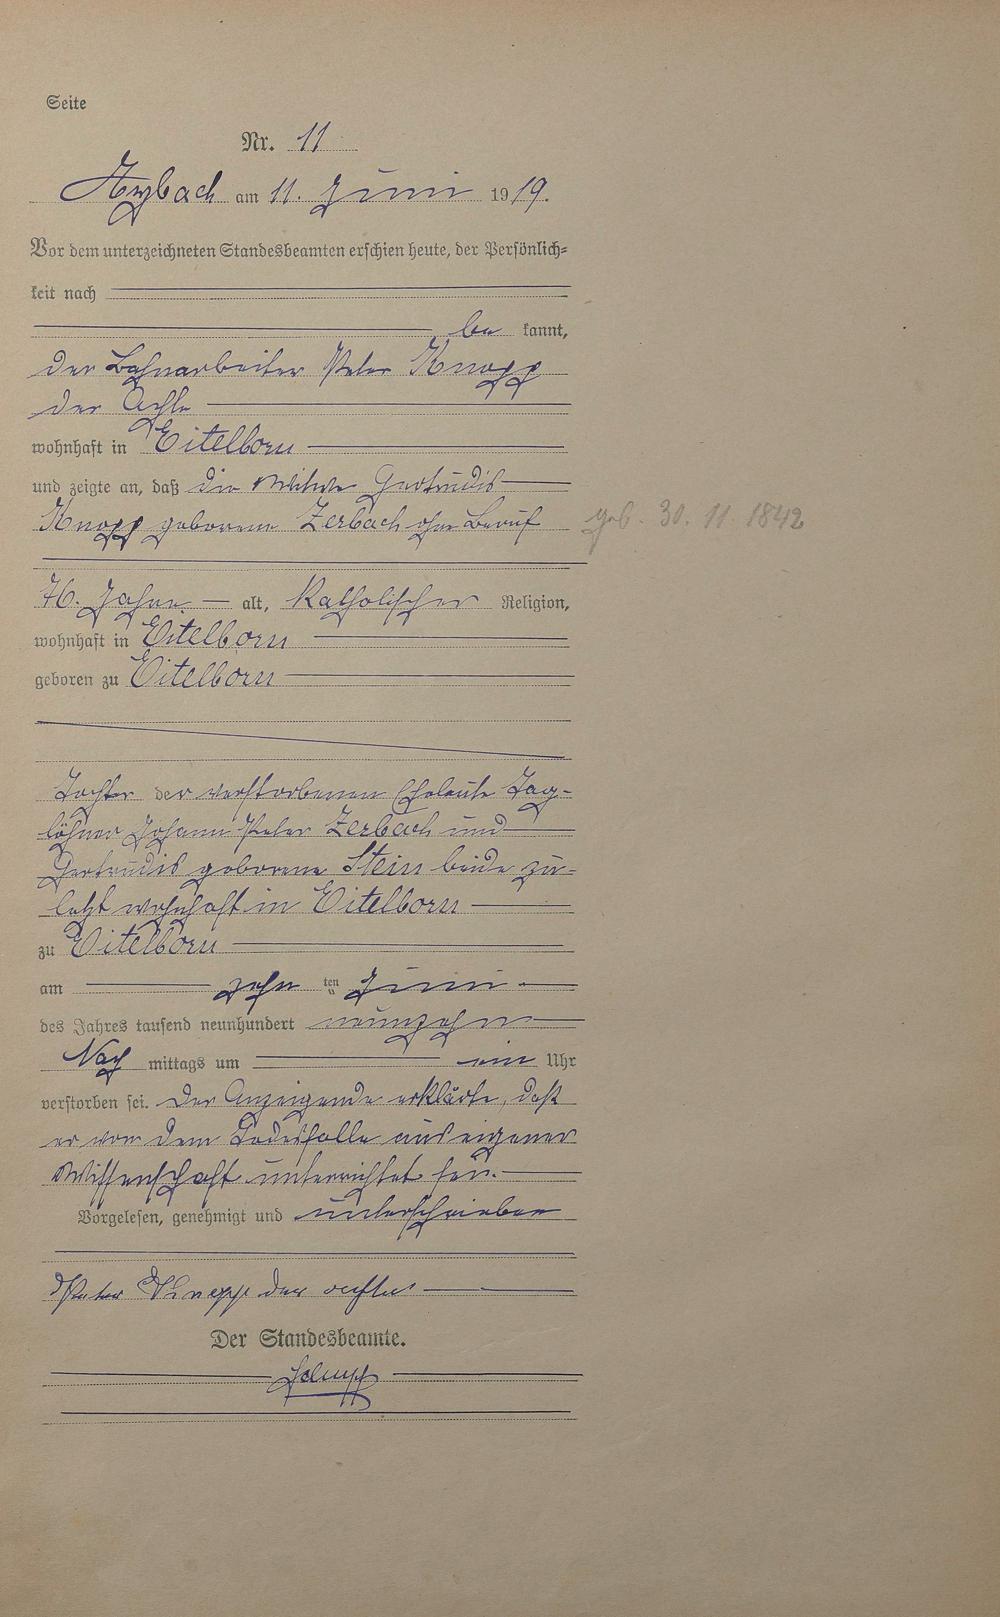 Seite
Nr. 11
Arzbach am 11. Juni 1919.
Vor dem unterzeichneten Standesbeamten erschien heute, der Persönlich=
keit nach
be kannt,
der Bahnarbeiter Peter Knopp
der Achte
wohnhaft in Eitelborn
und zeigte an, daß die Witwe Gertrudis
Knopp geborene Zerbach ohne Beruf
geb. 30. 11. 1842
76. Jahre alt, katholischer Religion,
wohnhaft in Eitelborn
geboren zu Eitelborn
Tochter der verstorbenen Eheleute Tag-
löhner Johann Peter Zerbach und
Gertrudis geborene Stein beide zu=
letzt wohnhaft in Eitelborn
zu Eitelborn
am zehn ten Juni
des Jahres tausend neunhundert neunzehn
Nach mittags um ein Uhr
verstorben sei. Der Anzeigende erklärte, daß
er von dem Todesfalle aus eigener
Wissenschaft unterrichtet sei.
Vorgelesen, genehmigt und unterschrieben
Peter Knopp der achte
Der Standesbeamte.